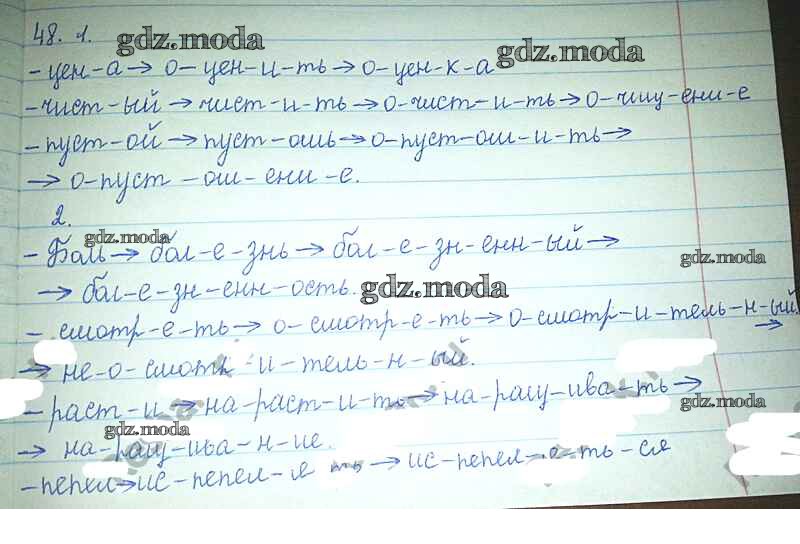 48. 1. gdz.moda
- цен-а → о-цен-и-ть → о-цен-к-а gdz.moda
- чист-ый → чист-и-ть → о-чист-и-ть → о-чищ-ени-е
- пуст-ой → пуст-ошь → о-пуст-ош-и-ть →
→ о-пуст-ош-ени-е.
2.
gdz.moda
- Боль → бол-е-знь → бол-е-зн-енн-ый →
gdz.moda
→ бол-е-зн-енн-ость. gdz.moda
- смотр-е-ть → о-смотр-е-ть → о-смотр-и-тель-н-ый →
→ не-о-смотр-и-тель-н-ый.
- раст-и → на-раст-и-ть → на-ращ-ива-ть →
gdz.moda gdz.moda
→ на-ращ-ива-н-ие.
- пепел → ис-пепел-я ть → ис-пепел-я-ть-ся